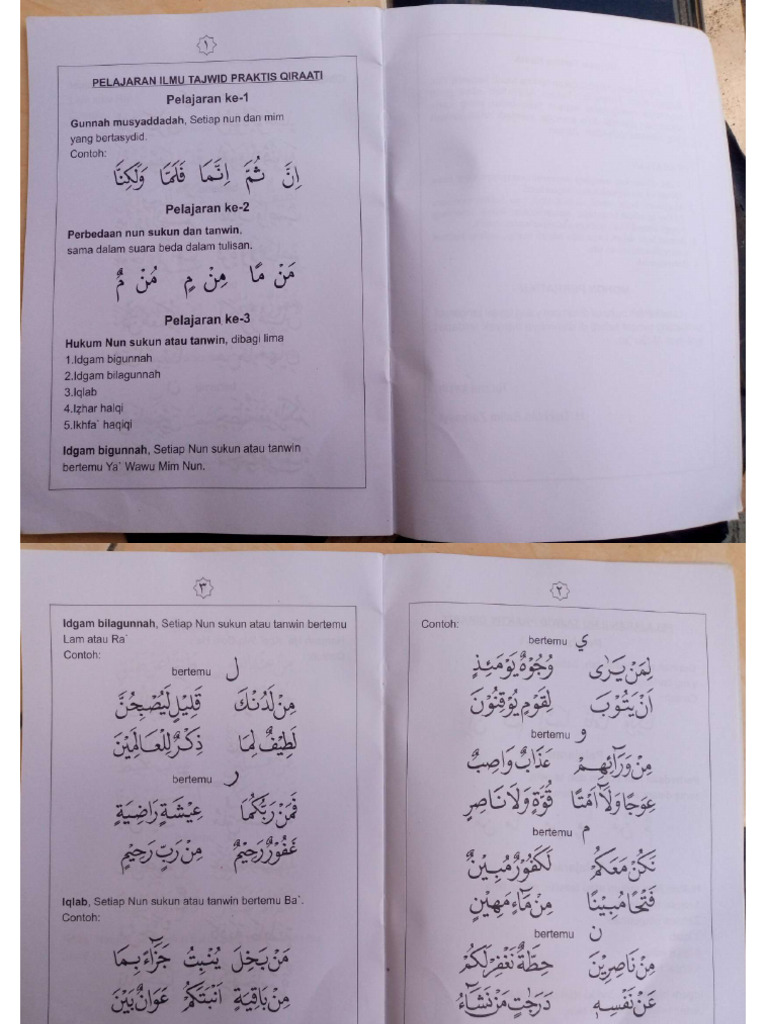 ١
PELAJARAN ILMU TAJWID PRAKTIS QIRAATI
Pelajaran ke-1
Gunnah musyaddadah, Setiap nun dan mim
yang bertasydid.
Contoh:
اِنَّ ثُمَّ اِنَّمَا فَلَمَّا وَلٰكِنَّا
Pelajaran ke-2
Perbedaan nun sukun dan tanwin,
sama dalam suara beda dalam tulisan.
مَنْ مًا مِنْ مٍ مُنْ مٌ
Pelajaran ke-3
Hukum Nun sukun atau tanwin, dibagi lima
1.Idgam bigunnah
2.Idgam bilagunnah
3.Iqlab
4.Iẓhar halqi
5.Ikhfa` haqiqi
Idgam bigunnah, Setiap Nun sukun atau tanwin
bertemu Ya` Wawu Mim Nun.
٢
Contoh:
bertemu ي
لِمَنْ يَرٰى وُجُوْهٌ يَوْمَئِذٍ
اَنْ يَتُوْبَ لِقَوْمٍ يُوْقِنُوْنَ
bertemu و
مِنْ وَرَآئِهِمْ عَذَابٌ وَاصِبٌ
عِوَجًا وَلَآ اَمْتًا قُوَّةٍ وَلَا نَاصِرٍ
bertemu م
نَكُنْ مَعَكُمْ لَكَفُوْرٌ مُبِيْنٌ
فَتْحًا مُبِيْنًا مِنْ مَآءٍ مَهِيْنٍ
bertemu ن
مِنْ نَاصِرِيْنَ حِطَّةٌ نَغْفِرْ لَكُمْ
عَنْ نَفْسِهٖ دَرَجٰتٍ مَنْ نَشَآءُ
٣
Idgam bilagunnah, Setiap Nun sukun atau tanwin bertemu
Lam atau Ra`
Contoh:
bertemu ل
مِنْ لَدُنْكَ قَلِيْلٍ لَيُصْبِحُنَّ
لَطِيْفٌ لِمَا ذِكْرٌ لِلْعَالَمِيْنَ
bertemu ر
فَمَنْ رَبُّكُمَا عِيْشَةٍ رَاضِيَةٍ
غَفُوْرٌ رَحِيْمٌ مِنْ رَبٍّ رَحِيْمٍ
Iqlab, Setiap Nun sukun atau tanwin bertemu Ba`.
Contoh:
مَنْ بَخِلَ يُنْبِتُ جَزَآءً بِمَا
مِنْ بَاقِيَةٍ اَنْبَتَكُمْ عَوَانٌ بَيْنَ